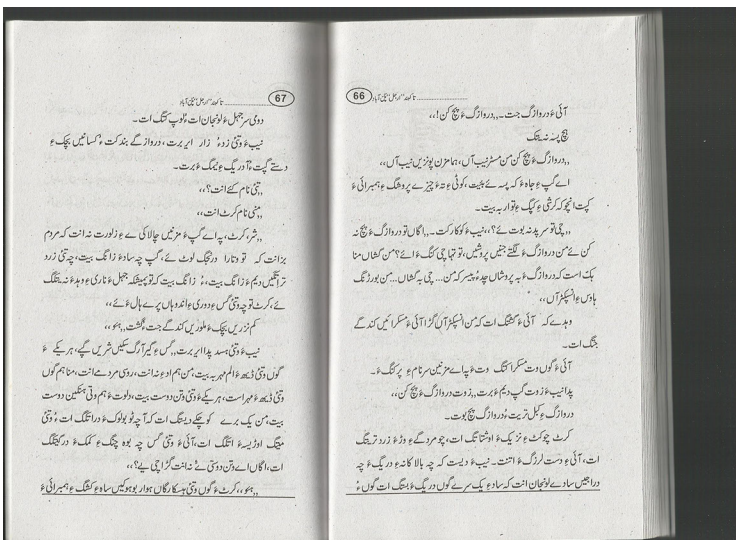 66 ........ تاکبند "ارجل" چین آباد
آئی ءَ دروازگ جت۔ ,,دروازگ ءَ پچ کن!،،
ہچ پسہ نہ بیتگ
,,دروازگ ءَ پچ کن من مسٹر نیب آں، ہما مزن پونزیں نیب آں،،
اے گپ ءِ جاہ ءَ کہ پسہ ئے بیت، کوٹی ءِ تہ ءَ چیزے پروشگ ءِ ہمبرائی ءَ
کپت انچو کہ کرشی ءِ کپگ ءِ توار بہ بیت۔
,,چی تو سرپد نہ بوت ئے؟،، نیب ءَ کوکارکت۔ ,,اگاں تو دروازگ ءَ پچ نہ
کن ئے من دروازگ ءَ لگتے جنیں پروشیں، تو تہا چی کنگ ءَ ائے؟ من گشاں منا
ہک است کہ دروازگ ءَ بہ پروشاں چدءُ پیسر کہ من... چی بہ گشاں... من بورڈنگ
ہاؤس ءِ انسپکٹر آں،،
وہدے کہ آئی ءَ گشتگ ات کہ من انسپکٹر آں گڑا آئی ءَ مسکرائیں کندگے
جتگ ات۔
آئی ءَ گوں وت مسکراتگ وت ءَ پہ اے مزنیں سرنام ءِ پر کنگ ءَ۔
پدا نیب ءَ زوت گپ دیم ءَ برت ,,زوت دروازگ ءَ پچ کن،،
دروازگ ءِ کبل تریت ءُ دروازگ پچ بوت۔
کرٹ چوکٹ ءِ نزیک ءَ اوشتاتگ ات، چو مردگے ءِ وڑ ءَ زرد تریتگ
ات، آئی ءِ دست لرزگ ءَ اتنت۔ نیب ءَ دیست کہ چہ بالاکانہ ءِ دریگ ءَ چہ
دراجیں سادے لونجان انت کہ ساد ءِ یک سرے گوں دریگ ءَ بستگ ات گوں ءُ
67 ........ تاکبند "ارجل" چین آباد
دومی سر جہل ءَ لونجان ات ءُ لوپ کتگ ات۔
نیب ءَ وتئی زدءُ زار ایر برت، دروازگے بندکت ءُ کسانیں بچک ءِ
دستے گپت ءُ آ دریگ ءِ نیمگ ءَ برت۔
,,تئی نام کئے انت؟،،
,,منی نام کرٹ انت،،
,,شر، کرٹ، پہ اے گپ ءَ مزنیں چالاکی ءِ زلورت نہ انت کہ مردم
بزانت کہ تو وتارا درنجگ لوٹ ئے، گپ چہ ساد ءَ زانگ بیت، چہ تئی زرد
ترا‌تگیں دیم ءَ زانگ بیت، ءُ زانگ بیت کہ تو ہمیشکہ جہل ءَ ناری ءِ وہد ءَ نہ بیتگ
ئے، کرٹ تو چہ وتئی گس ءِ دوری ءِ اندوہاں پرے ہال ءَ ئے،،
کم نزریں بچک ءَ ملوریں کندگے جت ءُ گشت ,,ہو،،
نیب ءَ وتئی ہسد پدا ایر برت ,,گس ءِ گیر آرگ سکیں شریں گپے، ہریکے ءَ
گوں وتئی ڈیہہ ءَ الم مہر بہ بیت، من ہم اودءِ نہ انت، روسی مردمے انت، منا ہم گوں
وتئی ڈیہہ ءَ مہر است، ہریکے ءَ وتئی وتن دوست بیت، دلوت ءَ ہم وتی ہنکین دوست
بیت، من یک برے کوچکے دیستگ ات کہ آ چہ ٹوبولوک ءَ دراتگ ات ءُ وتئی
میتگ اوڑیسہ ءَ اتلگ ات، آئی ءَ وتئی گس چہ بوہ چنگ ءِ کمک ءَ در گیتگ
ات، اگاں اے وتن دوستی ئے نہ انت گڑا چی یے؟،،
,,ہو،، کرٹ ءَ گوں وتئی ہسکارگاں ہوار بوہو کیں ساہ ءِ کشگ ءِ ہمبرائی ءَ